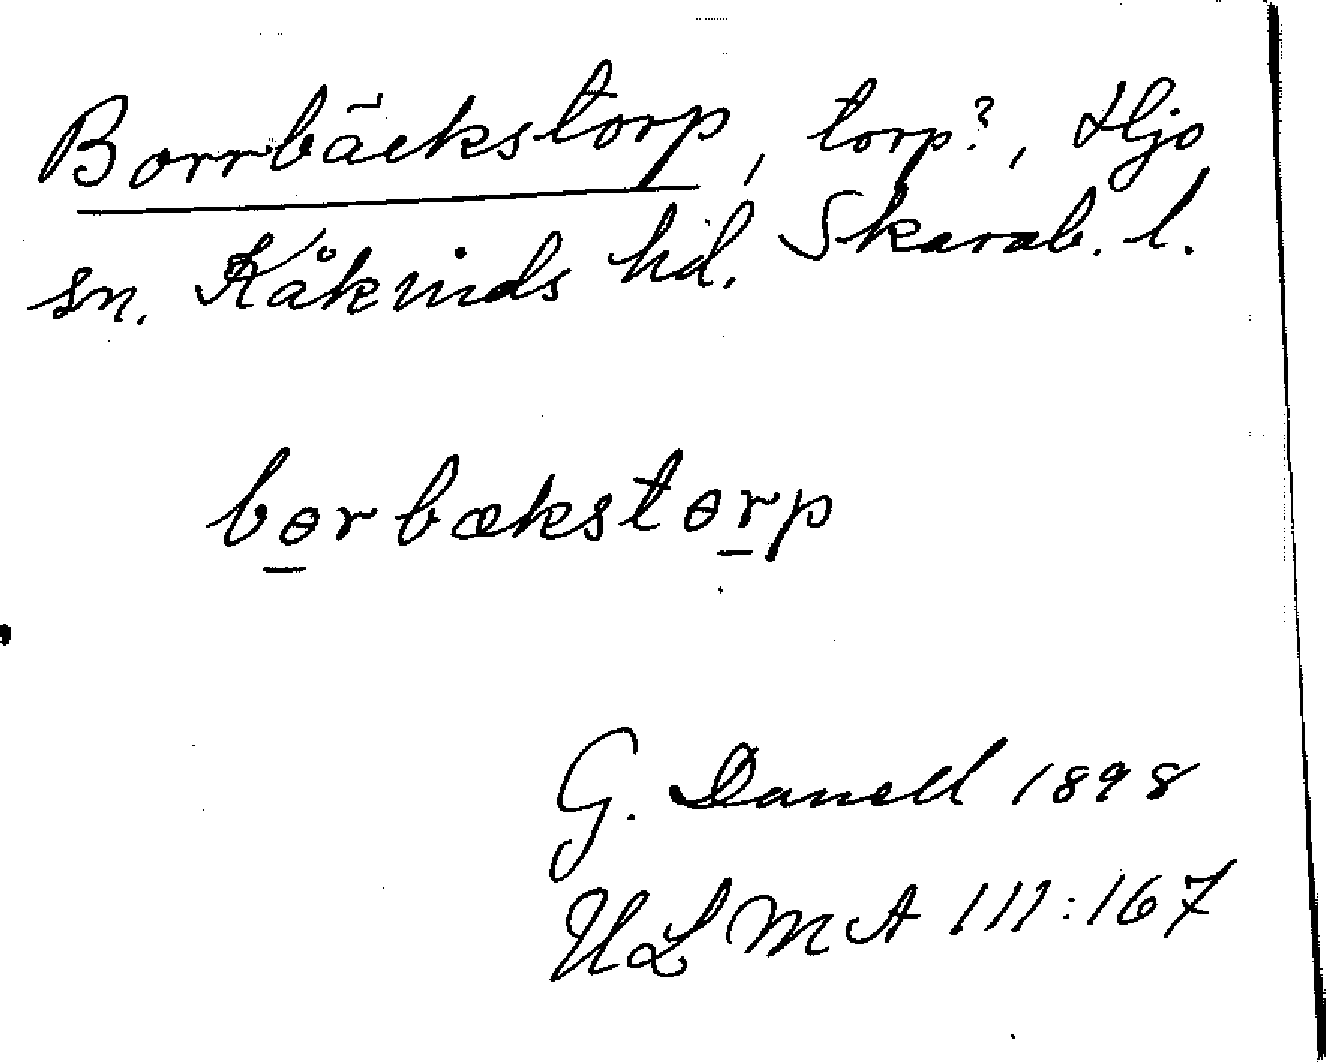 Borrbäckstorp, torp?, Hjo
sn. Kåkinds hd. Skarab. l.
bɵrbækstɵrp
G. Danell 1898
ULMA 111:167